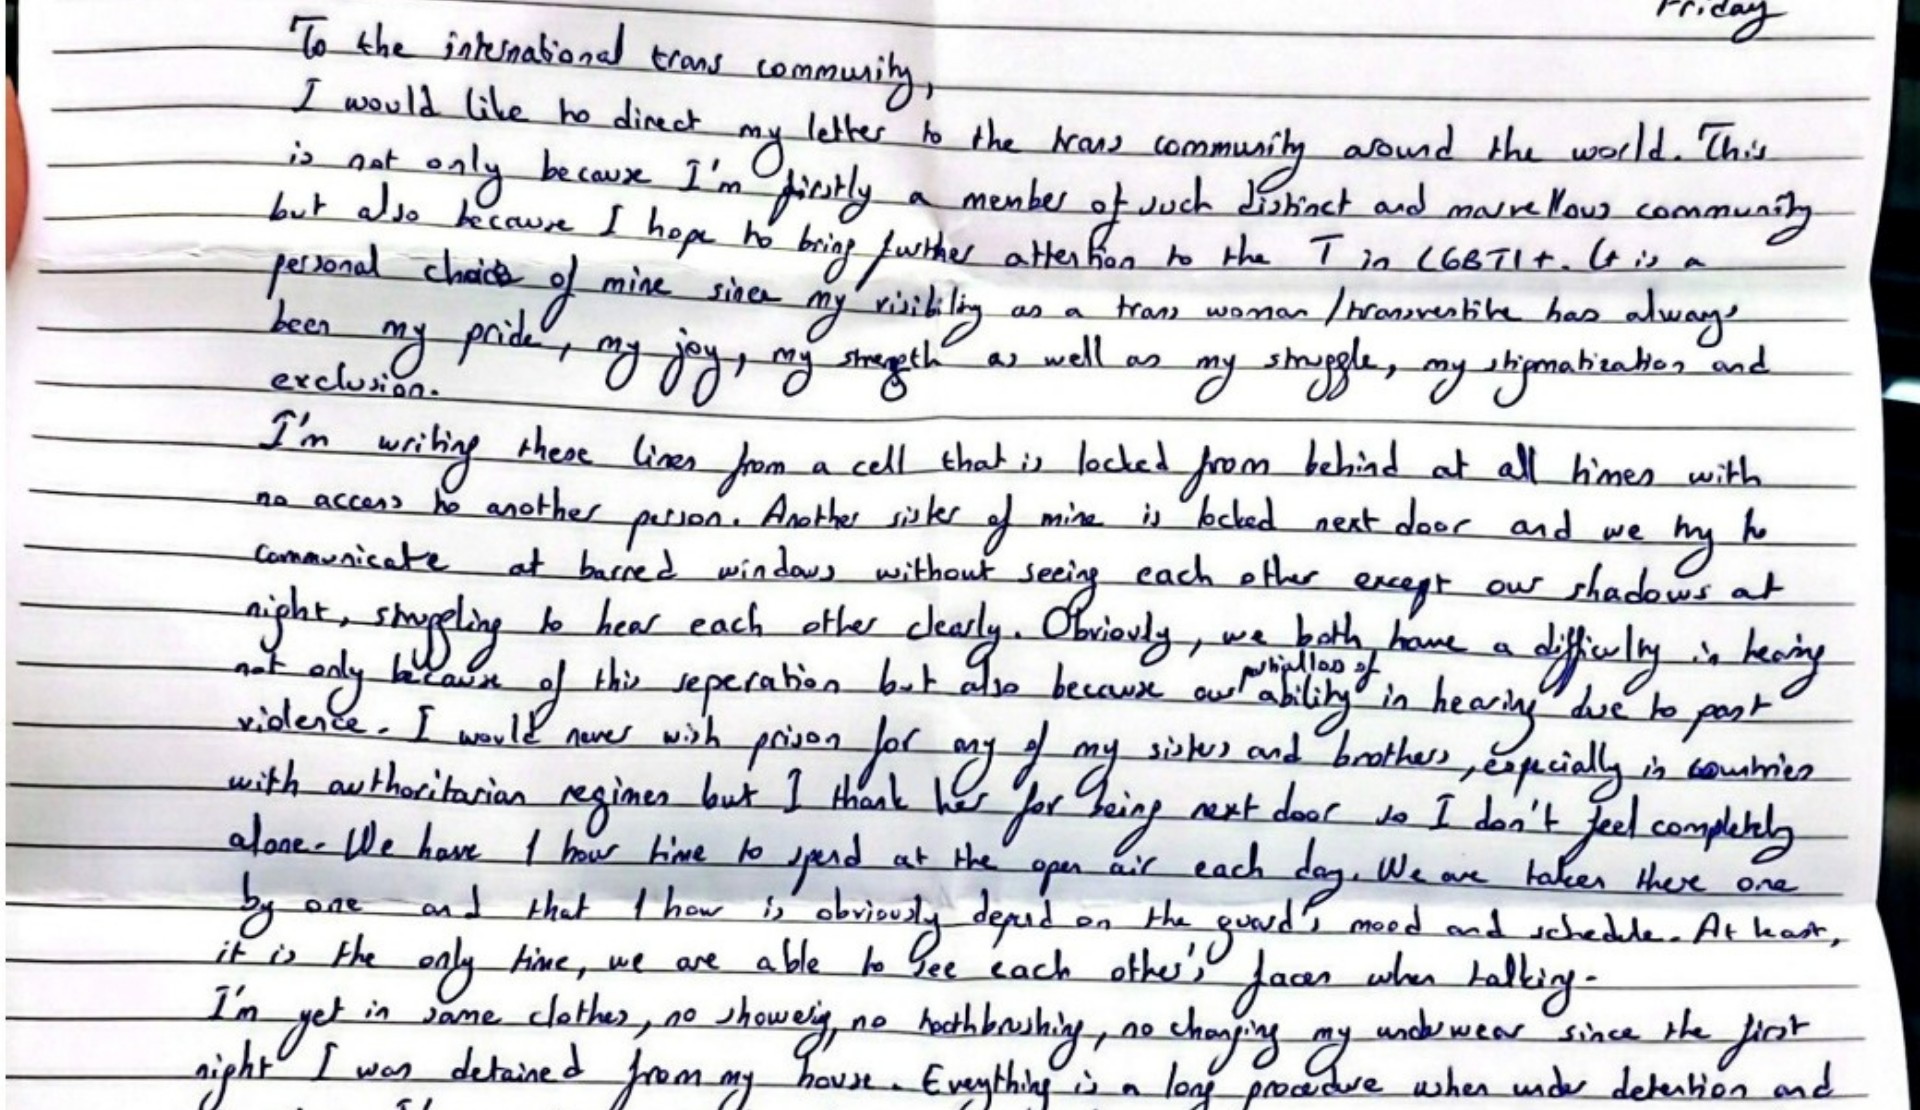 Friday
To the international trans community,
I would like to direct my letter to the trans community around the world. This
is not only because I'm firstly a member of such distinct and marvellous community
but also because I hope to bring further attention to the T in LGBTI+. It is a
personal choice of mine since my visibility as a trans woman/transvestite has always
been my pride, my joy, my strength as well as my struggle, my stigmatization and
exclusion.
I'm writing these lines from a cell that is locked from behind at all times with
no access to another person. Another sister of mine is locked next door and we try to
communicate at barred windows without seeing each other except our shadows at
night, struggling to hear each other clearly. Obviously, we both have a difficulty in hearing
partial loss of
not only because of this seperation but also because our ability in hearing due to past
violence. I would never wish prison for any of my sisters and brothers, especially in countries
with authoritarian regimes but I thank her for being next door so I don't feel completely
alone. We have 1 hour time to spend at the open air each day. We are taken there one
by one and that 1 hour is obviously depend on the guard's mood and schedule. At least,
it is the only time, we are able to see each other's faces when talking.
I'm yet in same clothes, no showerig, no toothbrushing, no changing my underwear since the first
night I was detained from my house. Everything is a long procedure when under detention and